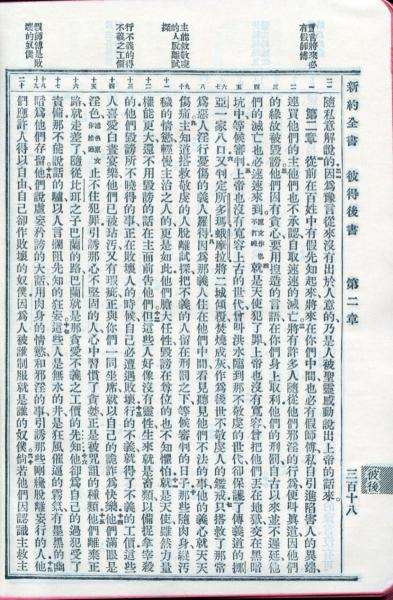 新約全書 彼得後書 第二章 三百十八
彼後
言將來必
有假師傅
主能救敬虔
的人脫離試
探
行不義的得
不義之工價
假師傅是敗
壞的奴僕
隨私意解說的因為豫言從來沒有出於人意的乃是人被聖靈感動說出上帝的話來
第二章 從前在百姓中有假先知起來將來在你們中間也必有假師傅私自引進陷害人的異端
連買他們的主他們也不承認自取速速的滅亡將有許多人隨從他們邪淫的行為便叫真道因他們
的緣故被毀謗他們因有貪心要用捏造的言語在你們身上取利他們的刑罰自古以來並不遲延他
們的滅亡也必速速來到就是天使犯了罪上帝也沒有寬容曾把他們丟在地獄交在黑暗
坑中等候審判上帝也沒有寬容上古的世代曾叫洪水臨到那不敬虔的世代卻保護了傳義道的挪
亞一家八口又判定所多瑪蛾摩拉將二城傾覆焚燒成灰作為後世不敬虔人的鑑戒只搭救了那常
為惡人淫行憂傷的義人羅得因為那義人住在他們中間看見聽見他們不法的事他的義心就天天
傷痛主知道搭救敬虔的人脫離試探把不義的人留在刑罰之下等候審判的日子那些隨肉身縱污
穢的情慾輕慢主治之人的更是如此他們膽大任性毀謗在尊位的也不知懼怕就是天使雖然力量
權能更大還不用毀謗的話在主面前告他們但這些人好像沒有靈性生來就是畜類以備捉拿宰殺
的他們毀謗所不曉得的事正在敗壞人的時候自己必遭遇敗壞行的不義就得了不義的工價這些
人喜愛白晝宴樂他們已被玷污又有瑕疵正與你們一同坐席就以自己的詭詐為快樂他們滿眼是
淫色止不住犯罪引誘那心不堅固的人心中習慣了貪婪正是被咒詛的種類他們離棄正
路就走差了隨從比珥之子巴蘭的路巴蘭就是那貪愛不義之工價的先知他卻為自己的過犯受了
責備那不能說話的驢以人言攔阻先知的狂妄這些人是無水的井是狂風催逼的霧氣有墨黑的幽
暗為他們存留他們說虛妄矜誇的大話用肉身的情慾和邪淫的事引誘那些剛纔脫離妄行的人他
們應許人得以自由自己卻作敗壞的奴僕因為人被誰制服就是誰的奴僕倘若他們因認識救主主